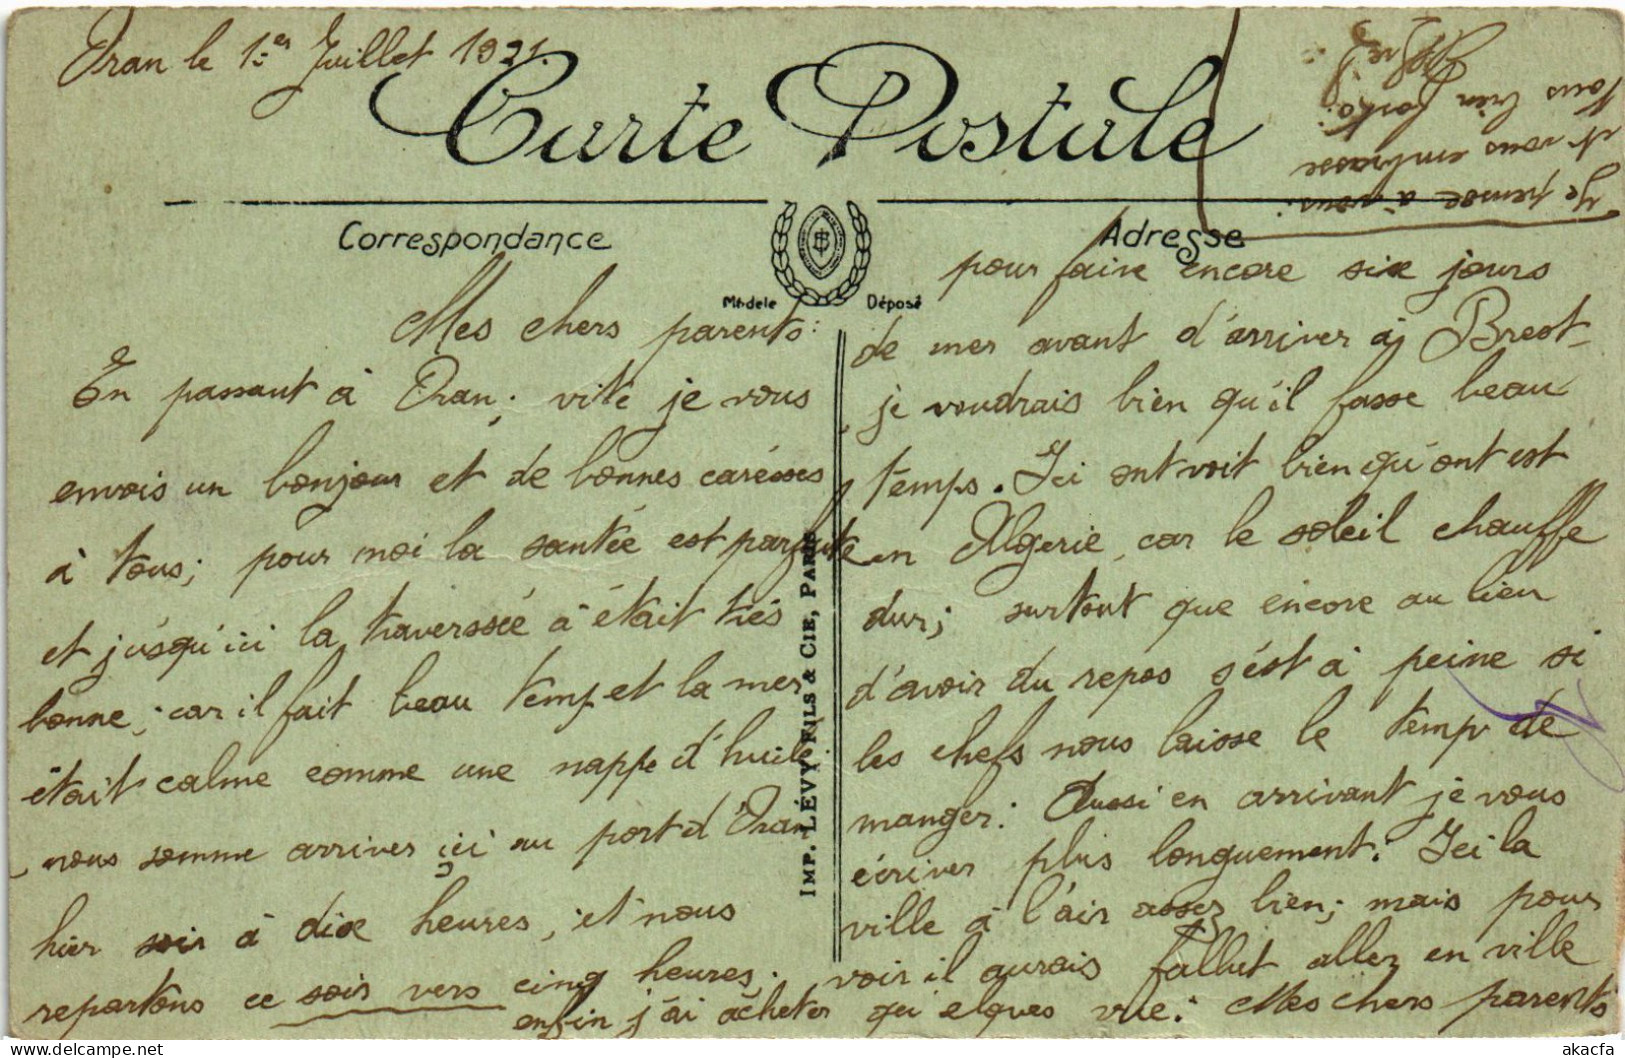 Oran le 1er Juillet 1921.
Carte Postale
Correspondance
Adresse
Modèle Déposé
Mes chers parents:
En passant à Oran; vite je vous
envois un bonjour et de bonnes carésses
à tous; pour moi la santée est parfaite
et jusqu'ici la traverssée à était trés
bonne; car il fait beau temp et la mer
était calme comme une nappe d'huile.
nous somme arriver ici au port d'Oran
hier soir à dix heures, et nous
repartons ce soir vers cinq heures;
enfin j'ai àcheter quelques vue: Mes chers parents
pour faire encore six jours
de mer avant d'arriver à Brest
je voudrais bien qu'il fasse beau
temps. Ici ont voit bien qu'ont est
en Algerie, car le soleil chauffe
dur; surtout que encore au lieu
d'avoir du repos s'ést à peine si
les chefs nous laisse le temp de
manger: Aussi en arrivant je vous
écriver plus longuement. Ici la
ville à l'air assez bien; mais pour
voir il aurais fallut allez en ville
Je pense à vous
et vous embrasse
Tous bien fort:
IMP. LÉVY FILS & CIE, PARIS
akacfa